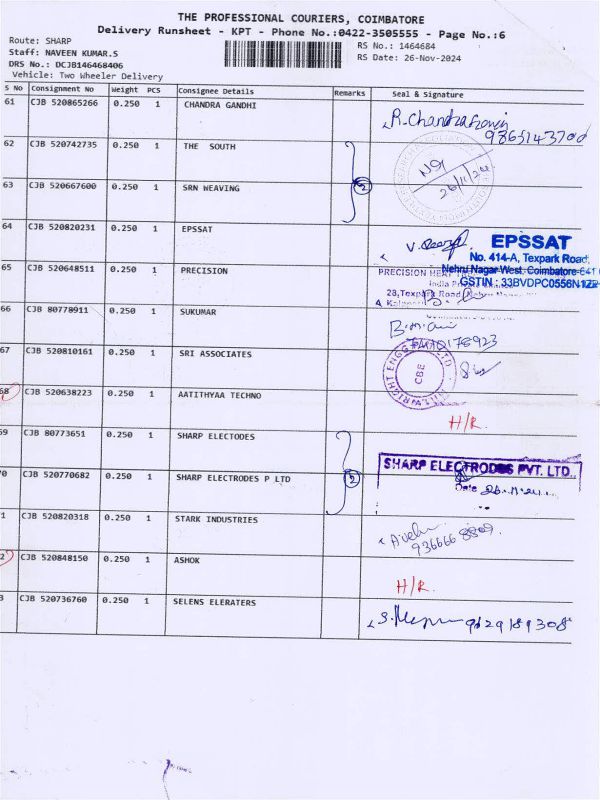 THE PROFESSIONAL COURIERS, COIMBATORE
Delivery Runsheet - KPT - Phone No.:0422-3505555 - Page No.:6
Route: SHARP
Staff: NAVEEN KUMAR.S
DRS No.: DCJB146468406
Vehicle: Two Wheeler Delivery
RS No.: 1464684
RS Date: 26-Nov-2024
S No Consignment No Weight PCS Consignee Details Remarks Seal & Signature
61 CJB 520865266 0.250 1 CHANDRA GANDHI R.Chandra Gandhi
9865143700
62 CJB 520742735 0.250 1 THE SOUTH
63 CJB 520667600 0.250 1 SRN WEAVING 2 26/11/24
64 CJB 520820231 0.250 1 EPSSAT
EPSSAT
No. 414-A, Texpark Road,
Nehru Nagar West, Coimbatore-641
GSTIN : 33BVDPC0556N1Z
65 CJB 520648511 0.250 1 PRECISION PRECISION
India
28, Texpark Road, Nehru Nagar
66 CJB 80778911 0.250 1 SUKUMAR
67 CJB 520810161 0.250 1 SRI ASSOCIATES CBE
68 CJB 520638223 0.250 1 AATITHYAA TECHNO H/R.
69 CJB 80773651 0.250 1 SHARP ELECTODES
SHARP ELECTRODES PVT. LTD.
Date
70 CJB 520770682 0.250 1 SHARP ELECTRODES P LTD 2
1 CJB 520820318 0.250 1 STARK INDUSTRIES
2 CJB 520848150 0.250 1 ASHOK H/R.
3 CJB 520736760 0.250 1 SELENS ELERATERS 9629189308